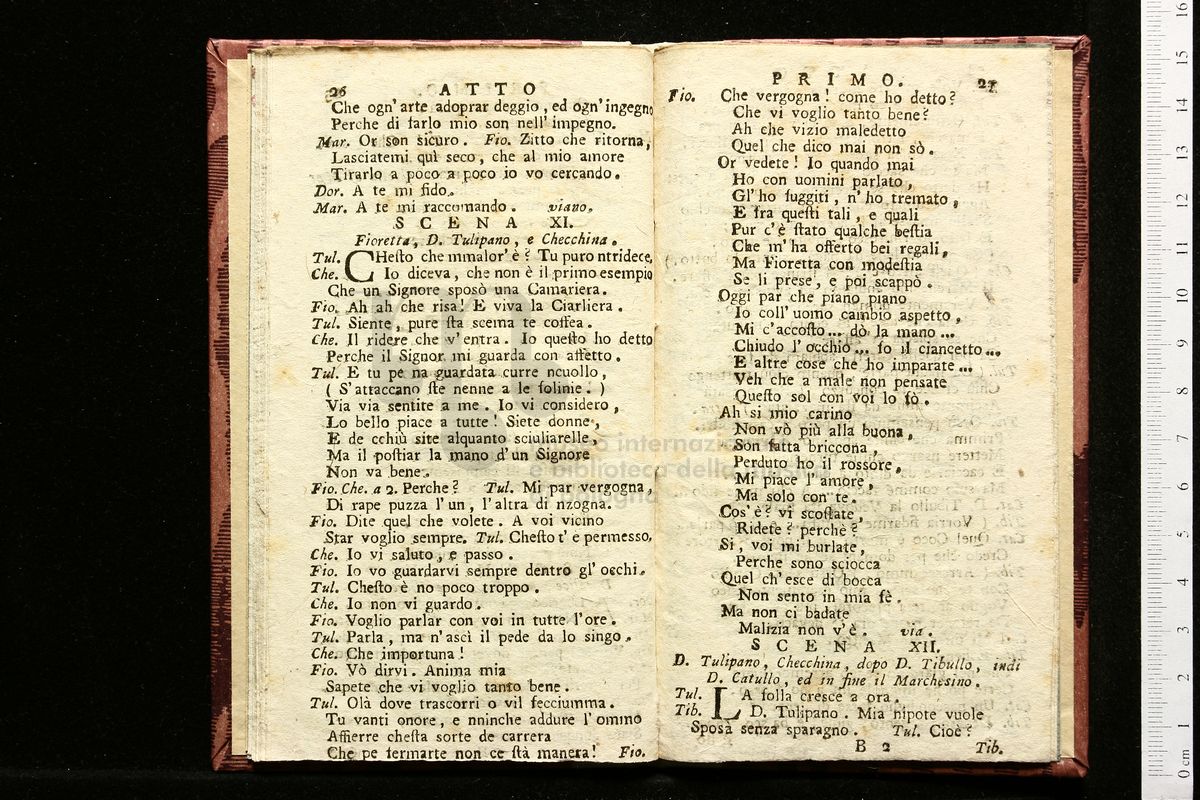 26 ATTO
Che ogn' arte adoprar deggio, ed ogn' ingegno
Perche di farlo mio son nell' impegno.
Mar. Or son sicuro. Fio. Zitto che ritorna,
Lasciatemi quì seco, che al mio amore
Tirarlo a poco a poco io vo cercando.
Dor. A te mi fido.
Mar. A te mi raccomando. viano.
SCENA XI.
Fioretta, D. Tulipano, e Checchina.
Tul. CHesto che mmalor' è? Tu puro ntridece,
Che. Io diceva, che non è il primo esempio
Che un Signore sposò una Camariera.
Fio. Ah ah che risa! E viva la Ciarliera.
Tul. Siente, pure sta scema te coffea.
Che. Il ridere che v'entra. Io questo ho detto
Perche il Signor mi guarda con affetto.
Tul. E tu pe na guardata curre ncuollo,
( S'attaccano ste nenne a le folinie. )
Via via sentite a me. Io vi considero,
Lo bello piace a tutte! Siete donne,
E de cchiù site alquanto sciuliarelle,
Ma il postiar la mano d'un Signore
Non va bene.
Fio. Che. a 2. Perche? Tul. Mi par vergogna,
Di rape puzza l'un, l'altra di nzogna.
Fio. Dite quel che volete. A voi vicino
Star voglio sempre. Tul. Chesto t'è permesso,
Che. Io vi saluto, e passo.
Fio. Io vo guardarvi sempre dentro gl' occhi.
Tul. Chesto è no poco troppo.
Che. Io non vi guardo.
Fio. Voglio parlar con voi in tutte l'ore.
Tul. Parla, ma n'ascì il pede da lo singo.
Che. Che importuna!
Fio. Vò dirvi. Anima mia
Sapete che vi voglio tanto bene.
Tul. Olà dove trascorri o vil fecciumma.
Tu vanti onore, e nninche addure l'ommo
Affierre chesta sorte de carrera
Che pe fermarte non ce stà manera! Fio.
PRIMO. 27
Fio. Che vergogna! come ho detto?
Che vi voglio tanto bene?
Ah che vizio maledetto
Quel che dico mai non sò.
Or vedete! Io quando mai
Ho con uomini parlato,
Gl' ho fuggiti, n' ho tremato,
E fra questi tali, e quali
Pur c' è stato qualche bestia
Che m' ha offerto bei regali,
Ma Fioretta con modestia
Se li prese, e poi scappò.
Oggi par che piano piano
Io coll' uomo cambio aspetto,
Mi c'accosto... dò la mano...
Chiudo l' occhio... fo il ciancetto...
E altre cose che ho imparate...
Veh che a male non pensate
Questo sol con voi lo fò.
Ah si mio carino
Non vò più alla buona,
Son fatta briccona,
Perduto ho il rossore,
Mi piace l' amore,
Ma solo con te.
Cos' è? vi scostate,
Ridete? perchè?
Si, voi mi burlate,
Perche sono sciocca
Quel ch' esce di bocca
Non sento in mia fè.
Ma non ci badate
Malizia non v' è. via.
SCENA XII.
D. Tulipano, Checchina, dopo D. Tibullo, indi
D. Catullo, ed in fine il Marchesino.
Tul. LA folla cresce a ora.
Tib. D. Tulipano. Mia nipote vuole
Sposà senza sparagno. Tul. Cioè?
B 2 Tib.